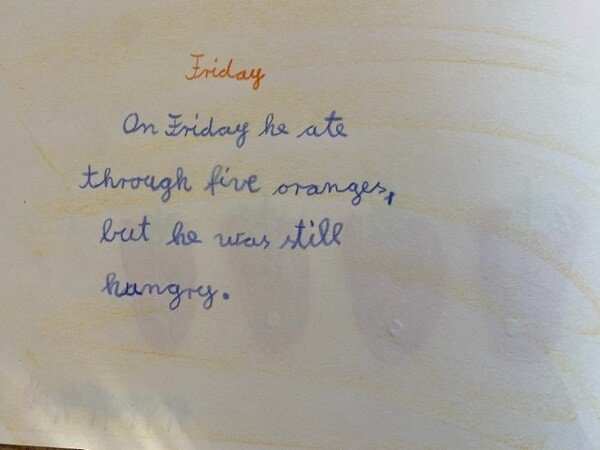 Friday
On Friday he ate
through five oranges,
but he was still
hungry.